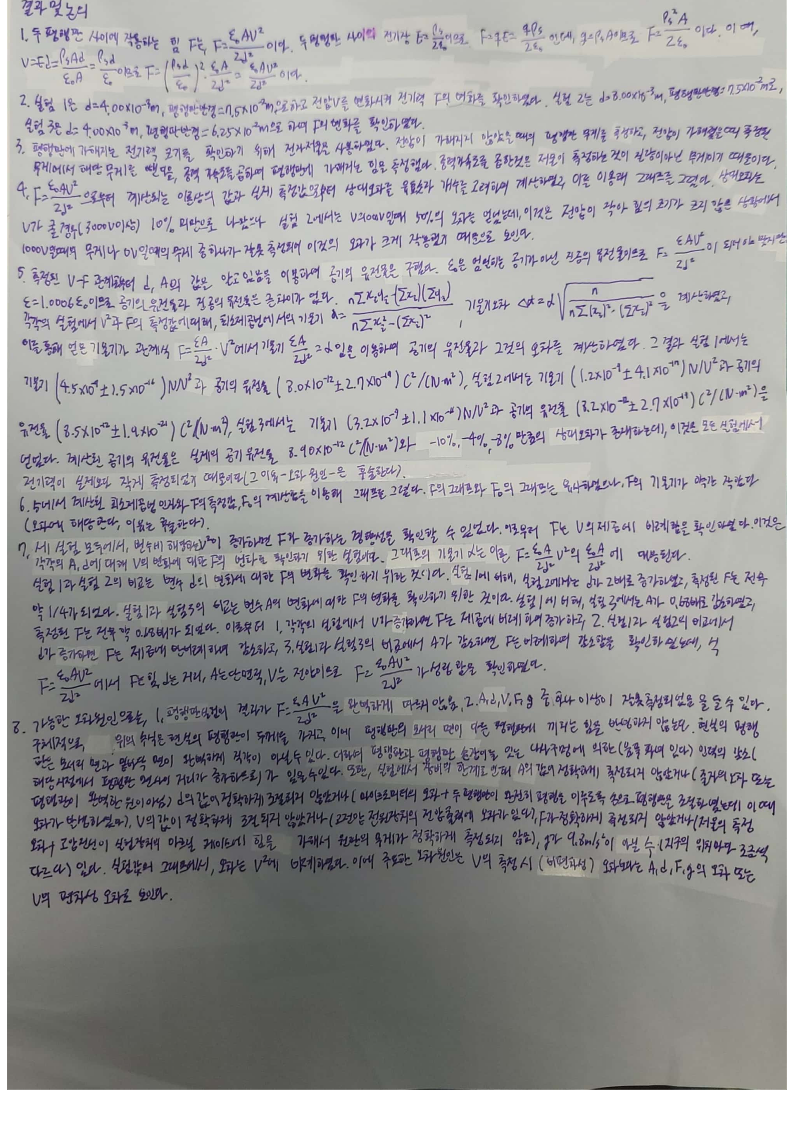 결과 및 논의
1. 두 평행판 사이에 작용하는 힘 F는, F=ε₀AV²/2d² 이다. 두 평행판 사이의 전기장 E=ρs/2ε₀이므로 F=qE=qρs/2ε₀ 인데, q=ρsA이므로 F=ρs²A/2ε₀ 이다. 이 때,
V=Ed=ρsAd/ε₀A=ρsd/ε₀ 이므로 F=(ρsd/ε₀)²·ε₀A/2d²=ε₀AV²/2d² 이다.
2. 실험 1은 d=4.00x10⁻³m, 평행판반경=7.5x10⁻²m으로하고 전압V를 변화시켜 전기력 F의 변화를 확인하였다. 실험 2는 d=8.00x10⁻³m, 평행판반경=7.5x10⁻²m로,
실험 3은 d=4.00x10⁻³m, 평행판반경=6.25x10⁻²m으로 하여 F의 변화를 확인하였다.
3. 평행판에 가해지는 전기력 크기를 확인하기 위해 전자저울을 사용하였다. 전압이 가해지지 않았을때의 평행판 무게를 측정하고, 전압이 가해졌을때 측정된
무게에서 해당 무게를 뺀 뒤, 중력 가속도를 곱하여 평행판에 가해지는 힘을 측정했다. 중력가속도를 곱한것은 저울이 측정하는것이 질량이아닌 무게이기 때문이다.
4. F=ε₀AV²/2d² 으로부터 계산되는 이론상의 값과 실제 측정값으로부터 상대오차를 유효숫자 개수를 고려하여 계산하였고, 이를 이용해 그래프를 그렸다. 상대오차는
V가 클 경우(3000V이상) 10% 미만으로 나왔으나 실험 2에서는 50%의 오차를 얻었는데, 이것은 전압이 작아 힘의 크기가 크지 않은 상황에서
1000V일때의 무게나 0V일때의 무게 중 하나가 잘못 측정되어 이것의 오차가 크게 작용했기 때문으로 보인다.
5. 측정된 V-F 관계로부터 d, A의 값을 알고 있음을 이용하여 공기의 유전율을 구했다. ε₀은 엄밀히는 공기가 아닌 진공의 유전율이므로 F=εAV²/2d² 이 되어야 맞지만
ε=1.0006ε₀이므로 공기의 유전율과 진공의 유전율은 큰 차이가 없다.
각각의 실험에서 V²과 F의 측정값에 대해, 최소제곱법에서의 기울기 α=nΣxᵢyᵢ-(Σxᵢ)(Σyᵢ)/nΣxᵢ²-(Σxᵢ)², 기울기오차 Δα=α√n/nΣ(xᵢ)²-(Σxᵢ)² 을 계산하였고,
이를 통해 얻은 기울기가 관계식 F=εA/2d²·V²에서 기울기 εA/2d²=α 임을 이용하여 공기의 유전율과 그것의 오차를 계산하였다. 그 결과 실험 1에서는
기울기 N/V²과 공기의 유전율 C²/(N·m²), 실험 2에서는 기울기 N/V²과 공기의
유전율 C²/(N·m²), 실험 3에서는 기울기 N/V²과 공기의 유전율 C²/(N·m²)을
얻었다. 계산된 공기의 유전율은 실제의 공기 유전율 8.90x10⁻¹² C²/(N·m²)와 -10%, -4%, -8% 만큼의 상대오차가 존재하는데, 이것은 모든 실험에서
전기력이 실제보다 작게 측정되었기 때문이다(그 이유-오차 원인-은 후술한다).
6. 5에서 계산된 최소제곱법 인자와 F의 측정값, F₀의 계산값을 이용해 그래프를 그렸다. F의 그래프와 F₀의 그래프는 유사하였으나, F의 기울기가 약간 작았다
(오차에 해당한다, 이유는 후술한다).
7. 세 실험 모두에서, 변수에 해당하는V²이 증가하면 F가 증가하는 경향성을 확인할 수 있었다. 이로부터 F는 V의 제곱에 비례함을 확인하였다. 이것은
각각의 A, d에 대해 V의 변화에 대한 F의 변화를 확인하기 위한 실험이다. 그래프의 기울기 α는 이론 F=ε₀A/2d² V²의 ε₀A/2d² 에 대응된다.
실험 1과 실험 2의 비교는 변수 d의 변화에 대한 F의 변화를 확인하기 위한 것이다. 실험 1에 비해, 실험 2에서는 d가 2배로 증가하였고, 측정된 F는 전부
약 1/4가 되었다. 실험 1과 실험 3의 비교는 변수 A의 변화에 대한 F의 변화를 확인하기 위한 것이다. 실험 1에 비해, 실험 3에서는 A가 감소하였고,
측정된 F는 전부 약 배가 되었다. 이로부터 1. 각각의 실험에서 V가 증가하면 F는 제곱에 비례하여 증가하고, 2. 실험 1과 실험 2의 비교에서
d가 증가하면 F는 제곱에 반비례하여 감소하고, 3. 실험1과 실험3의 비교에서 A가 감소하면 F는 비례하여 감소함을 확인하였는데, 즉
F=ε₀AV²/2d² 에서 F는 힘, d는 거리, A는 단면적, V는 전압이므로 F=ε₀AV²/2d² 가 성립함을 확인하였다.
8. 가능한 오차원인으로는, 1. 평행판실험의 결과가 F=ε₀AV²/2d²을 완벽하게 따르지 않음, 2. A, d, V, F, g 중 하나 이상이 잘못측정되었음을 들 수 있다.
구체적으로, 위의 수식은 현실의 평행판이 두께를 가지고, 이에 평행판의 모서리 면이 다른 평행판에 끼치는 힘을 반영하지 않는다. 현실의 평행
판은 모서리 면과 면이 완벽하게 직각이 아닐 수 있다. 더하여 평행판과 평행판 나사구멍에 의한 (움푹 파여 있다) 인력의 감소(
해당지점에서 평행판 면사이 거리가 증가하므로)가 있을 수 있다. 또한, 실험에서 장비의 한계로 인해 A의 값이 정확하게 측정되지 않았거나 (줄자의오차 또는
평행판이 완벽한 원이 아님) d의 값이 정확하게 조절되지 않았거나 (마이크로미터의 오차 + 두 평행판이 완전히 평행을 이루도록 손으로 평행판을 조절하였는데 이때
오차가 발생하였다), V의 값이 정확하게 조절되지 않았거나 (고전압 전원장치의 전압출력에 오차가 있다), F가 정확하게 측정되지 않았거나 (저울의 측정
오차 + 고압전선이 실험장치에 힘을 가해서 원판의 무게가 정확하게 측정되지 않음), g가 9.8m/s²이 아닐 수 (지구의 위치마다 조금씩
다르다) 있다. 실험값의 그래프에서, 오차는 V²에 비례하였다. 이에 주요한 오차원인은 V의 측정시 (비편차성) 오차보다는 A, d, F, g의 오차 또는
V의 편차성 오차로 보인다.